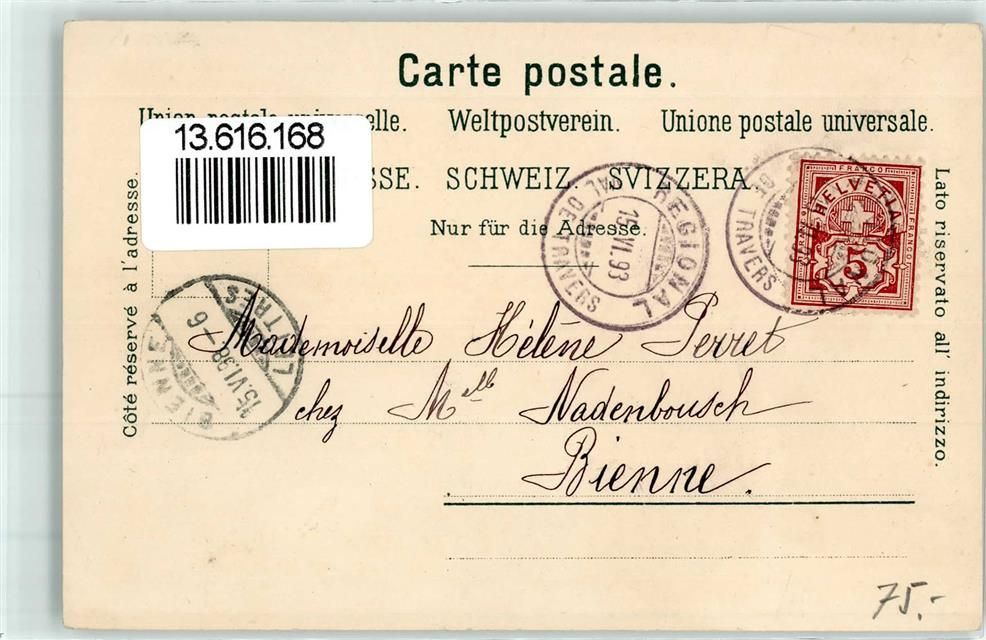 Carte postale.
Union postale universelle. Weltpostverein. Unione postale universale.
13.616.168
SSE. SCHWEIZ. SVIZZERA.
Nur für die Adresse.
Côté réservé à l'adresse.
Lato riservato all' indirizzo.
REGIONAL
15.VI.93
VAL DE TRAVERS
DE TRAVERS
FRANCO
HELVETIA
5
FRANCO
BIENNE
15.VI.98-6
LETTRES
Mademoiselle Hélène Perret
chez Melle Nadenbousch
Bienne.
75.-